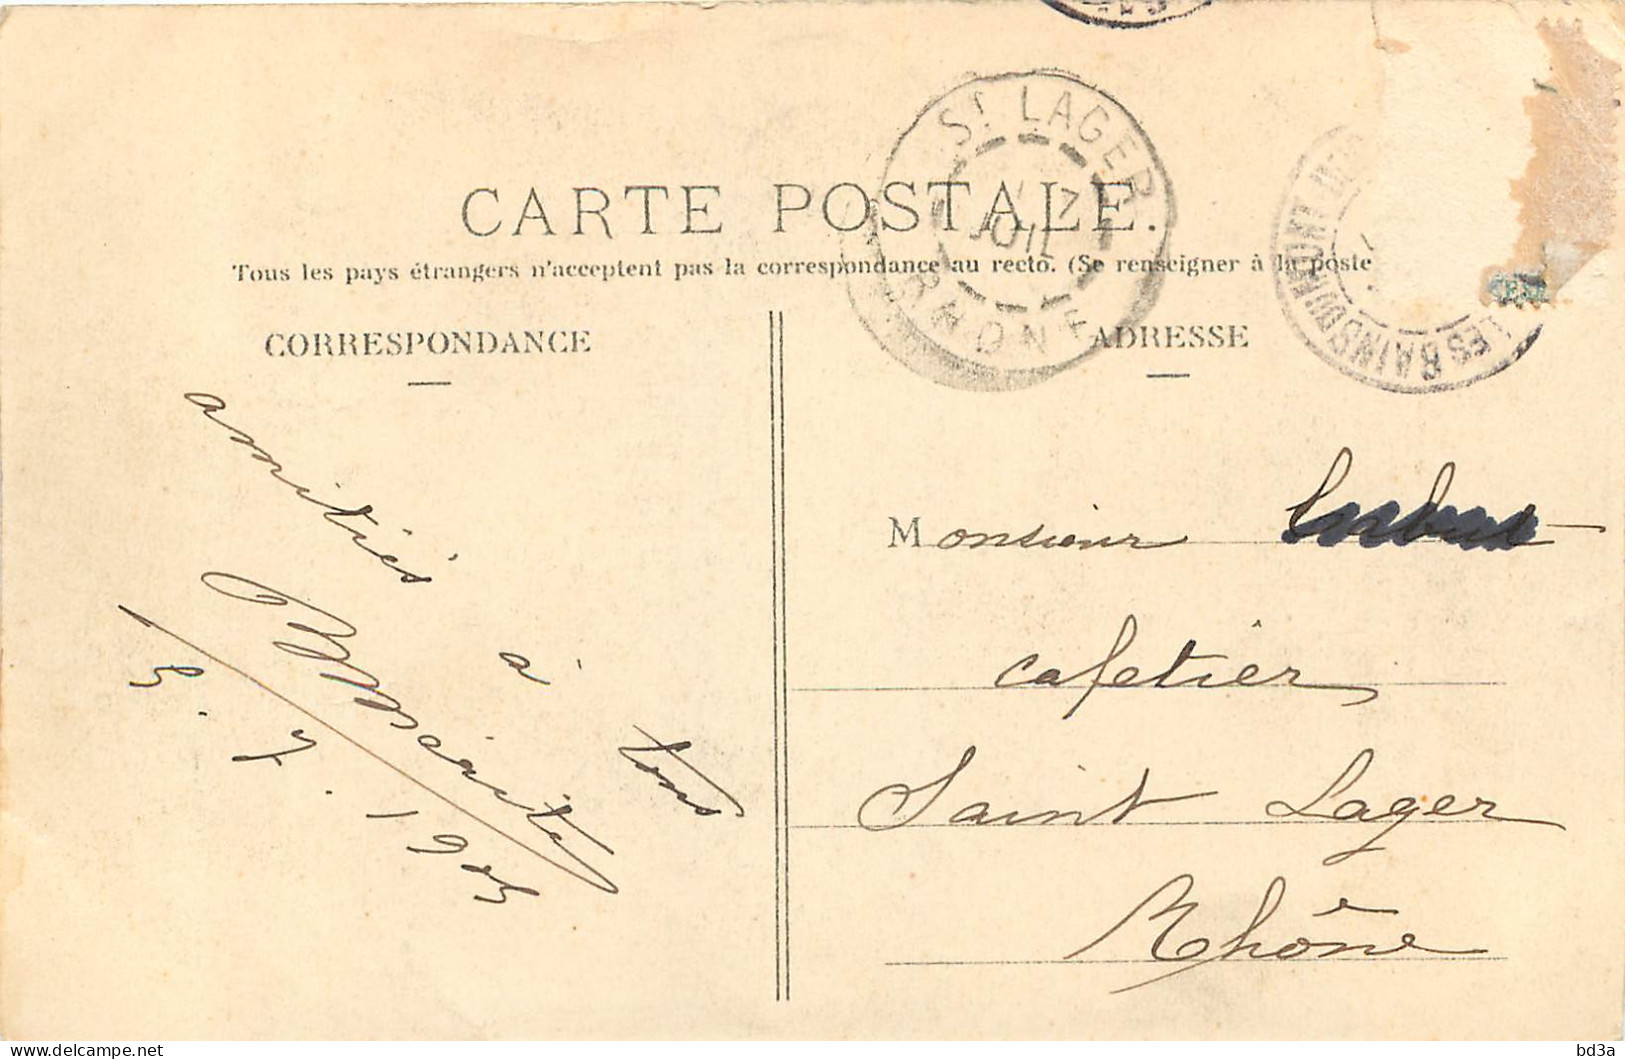 CARTE POSTALE.
Tous les pays étrangers n'acceptent pas la correspondance au recto. (Se renseigner à la poste
CORRESPONDANCE
ADRESSE
St LAGER
7
JUIL
RHONE
LES BAINS DU MONT
amitiés à tous
Monsieur
cafetier
Saint Lager
Rhône
bd3a